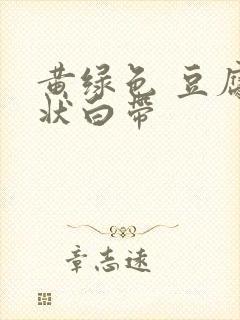 黄绿色 豆腐
状白带
章志远